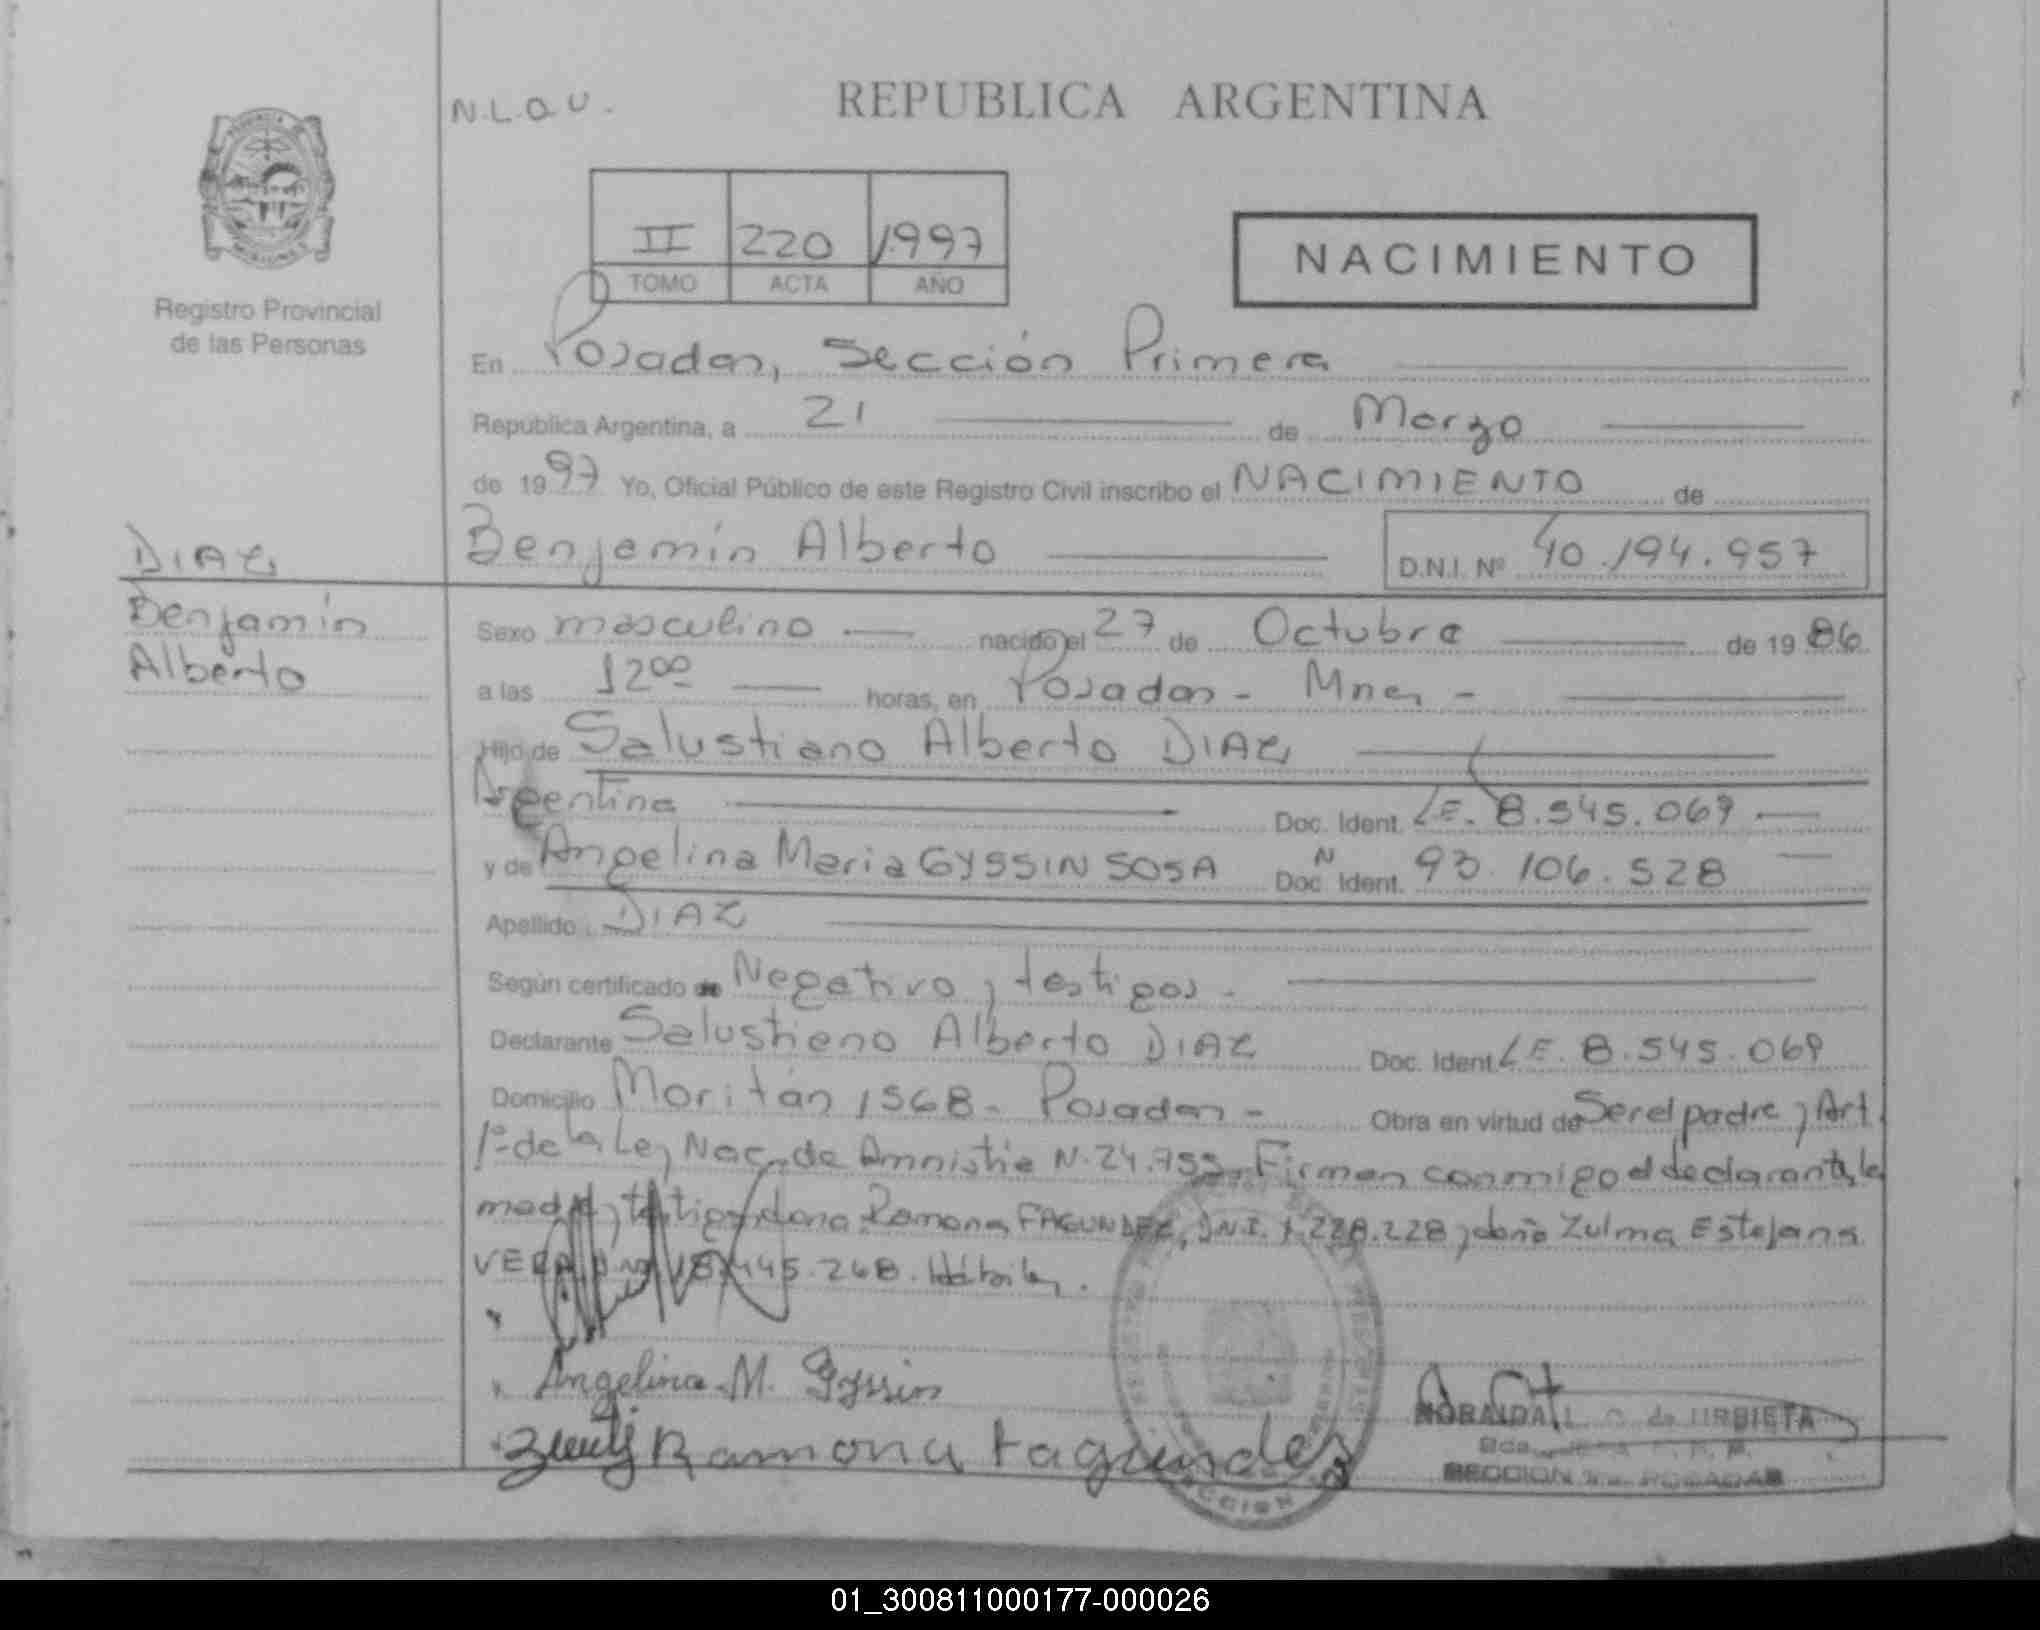 N.L.O.U.
REPUBLICA ARGENTINA
II 220 1997
TOMO ACTA AÑO
NACIMIENTO
Registro Provincial
de las Personas
En Posadas, Sección Primera
Republica Argentina, a 21 de Marzo
de 1997 Yo, Oficial Público de este Registro Civil inscribo el NACIMIENTO de
Benjamín Alberto D.N.I. Nº 40.194.957
DIAZ
Benjamín
Alberto
Sexo masculino nacido el 27 de Octubre de 1986
a las 12⁰⁰ horas, en Posadas - Mnes -
Hijo de Salustiano Alberto DIAZ
Argentina Doc. Ident. L.E. 8.545.069
y de Angelina Maria GYSSIN SOSA Doc. N Ident. 93.106.528
Apellido DIAZ
Según certificado de Negativo y testigos.
Declarante Salustiano Alberto DIAZ Doc. Ident. L.E. 8.545.069
Domicilio Moritán 1568 - Posadas - Obra en virtud de Ser el padre y Art.
1º de la Ley Nac. de Amnistía N. 24.755. Firman conmigo el declarante, la
madre y testigos doña Ramona FAGUNDEZ, D.N.I. 228.228 y doña Zulma Estefana
VERA 445.248. Hábiles.
Angelina M. Gyssin
Ramona Fagundez
NORAIDA L. de URBIETA
SECCION POSADAS
SECCION
01_300811000177-000026